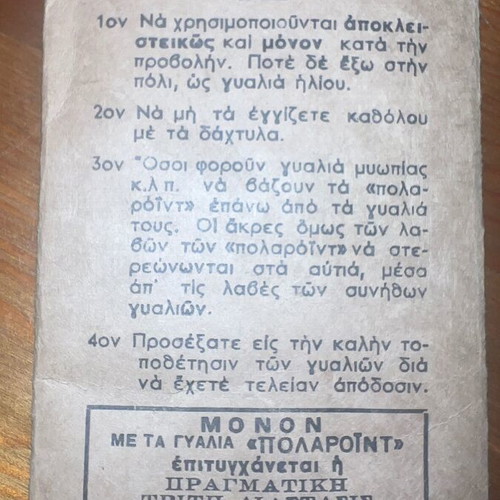 1ον Νὰ χρησιμοποιοῦνται ἀποκλει-
στεικῶς καὶ μόνον κατὰ τὴν
προβολήν. Ποτὲ δὲ ἔξω στὴν
πόλι, ὡς γυαλιὰ ἡλίου.
2ον Νὰ μὴ τὰ ἐγγίζετε καθόλου
μὲ τὰ δάχτυλα.
3ον Ὅσοι φοροῦν γυαλιὰ μυωπίας
κ.λ π. νὰ βάζουν τὰ «πολα-
ρόϊντ» ἐπάνω ἀπὸ τὰ γυαλιά
τους. Οἱ ἄκρες ὅμως τῶν λα-
βῶν τῶν «πολαρόϊντ» νὰ στε-
ρεώνωνται στὰ αὐτιά, μέσα
ἀπ' τὶς λαβὲς τῶν συνήθων
γυαλιῶν.
4ον Προσέξατε εἰς τὴν καλὴν το-
ποθέτησιν τῶν γυαλιῶν διὰ
νὰ ἔχετὲ τελείαν ἀπόδοσιν.
ΜΟΝΟΝ
ΜΕ ΤΑ ΓΥΑΛΙΑ «ΠΟΛΑΡΟΪΝΤ»
ἐπιτυγχάνεται ἡ
ΠΡΑΓΜΑΤΙΚΗ
ΤΡΙΤΗ ΔΙΑΣΤΑΣΙΣ